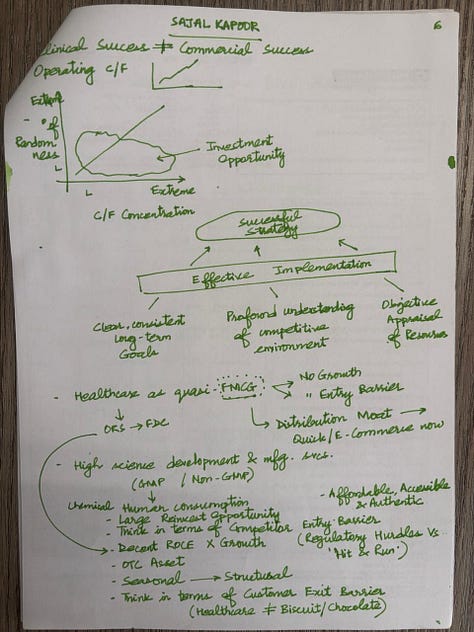 SAJAL KAPOOR
6
Clinical Success ≠ Commercial Success
Operating C/F
Extreme
° of
Randomness
L
L
Extreme
Investment
Opportunity
C/F Concentration
Successful
Strategy
Effective Implementation
Clear, consistent
long-term
Goals
Profound understanding
of competitive
environment
Objective
Appraisal
of Resources
- Healthcare as quasi-FMCG → No Growth
→ " Entry Barrier
→ FDC
Distribution Moat →
Quick/E-Commerce now
- High science development & mfg. svcs.
(GMP / Non-GMP)
Chemical Human consumption
- Large Reinvest Opportunity
- Think in terms of Competitor Entry Barrier
(Regulatory Hurdles vs
'Hit & Run')
- Affordable, Accessible
& Authentic
- Decent ROCE X Growth
- OTC Asset
- Seasonal → Structural
- Think in terms of Customer Exit Barrier
(Healthcare ≠ Biscuit/Chocolate)